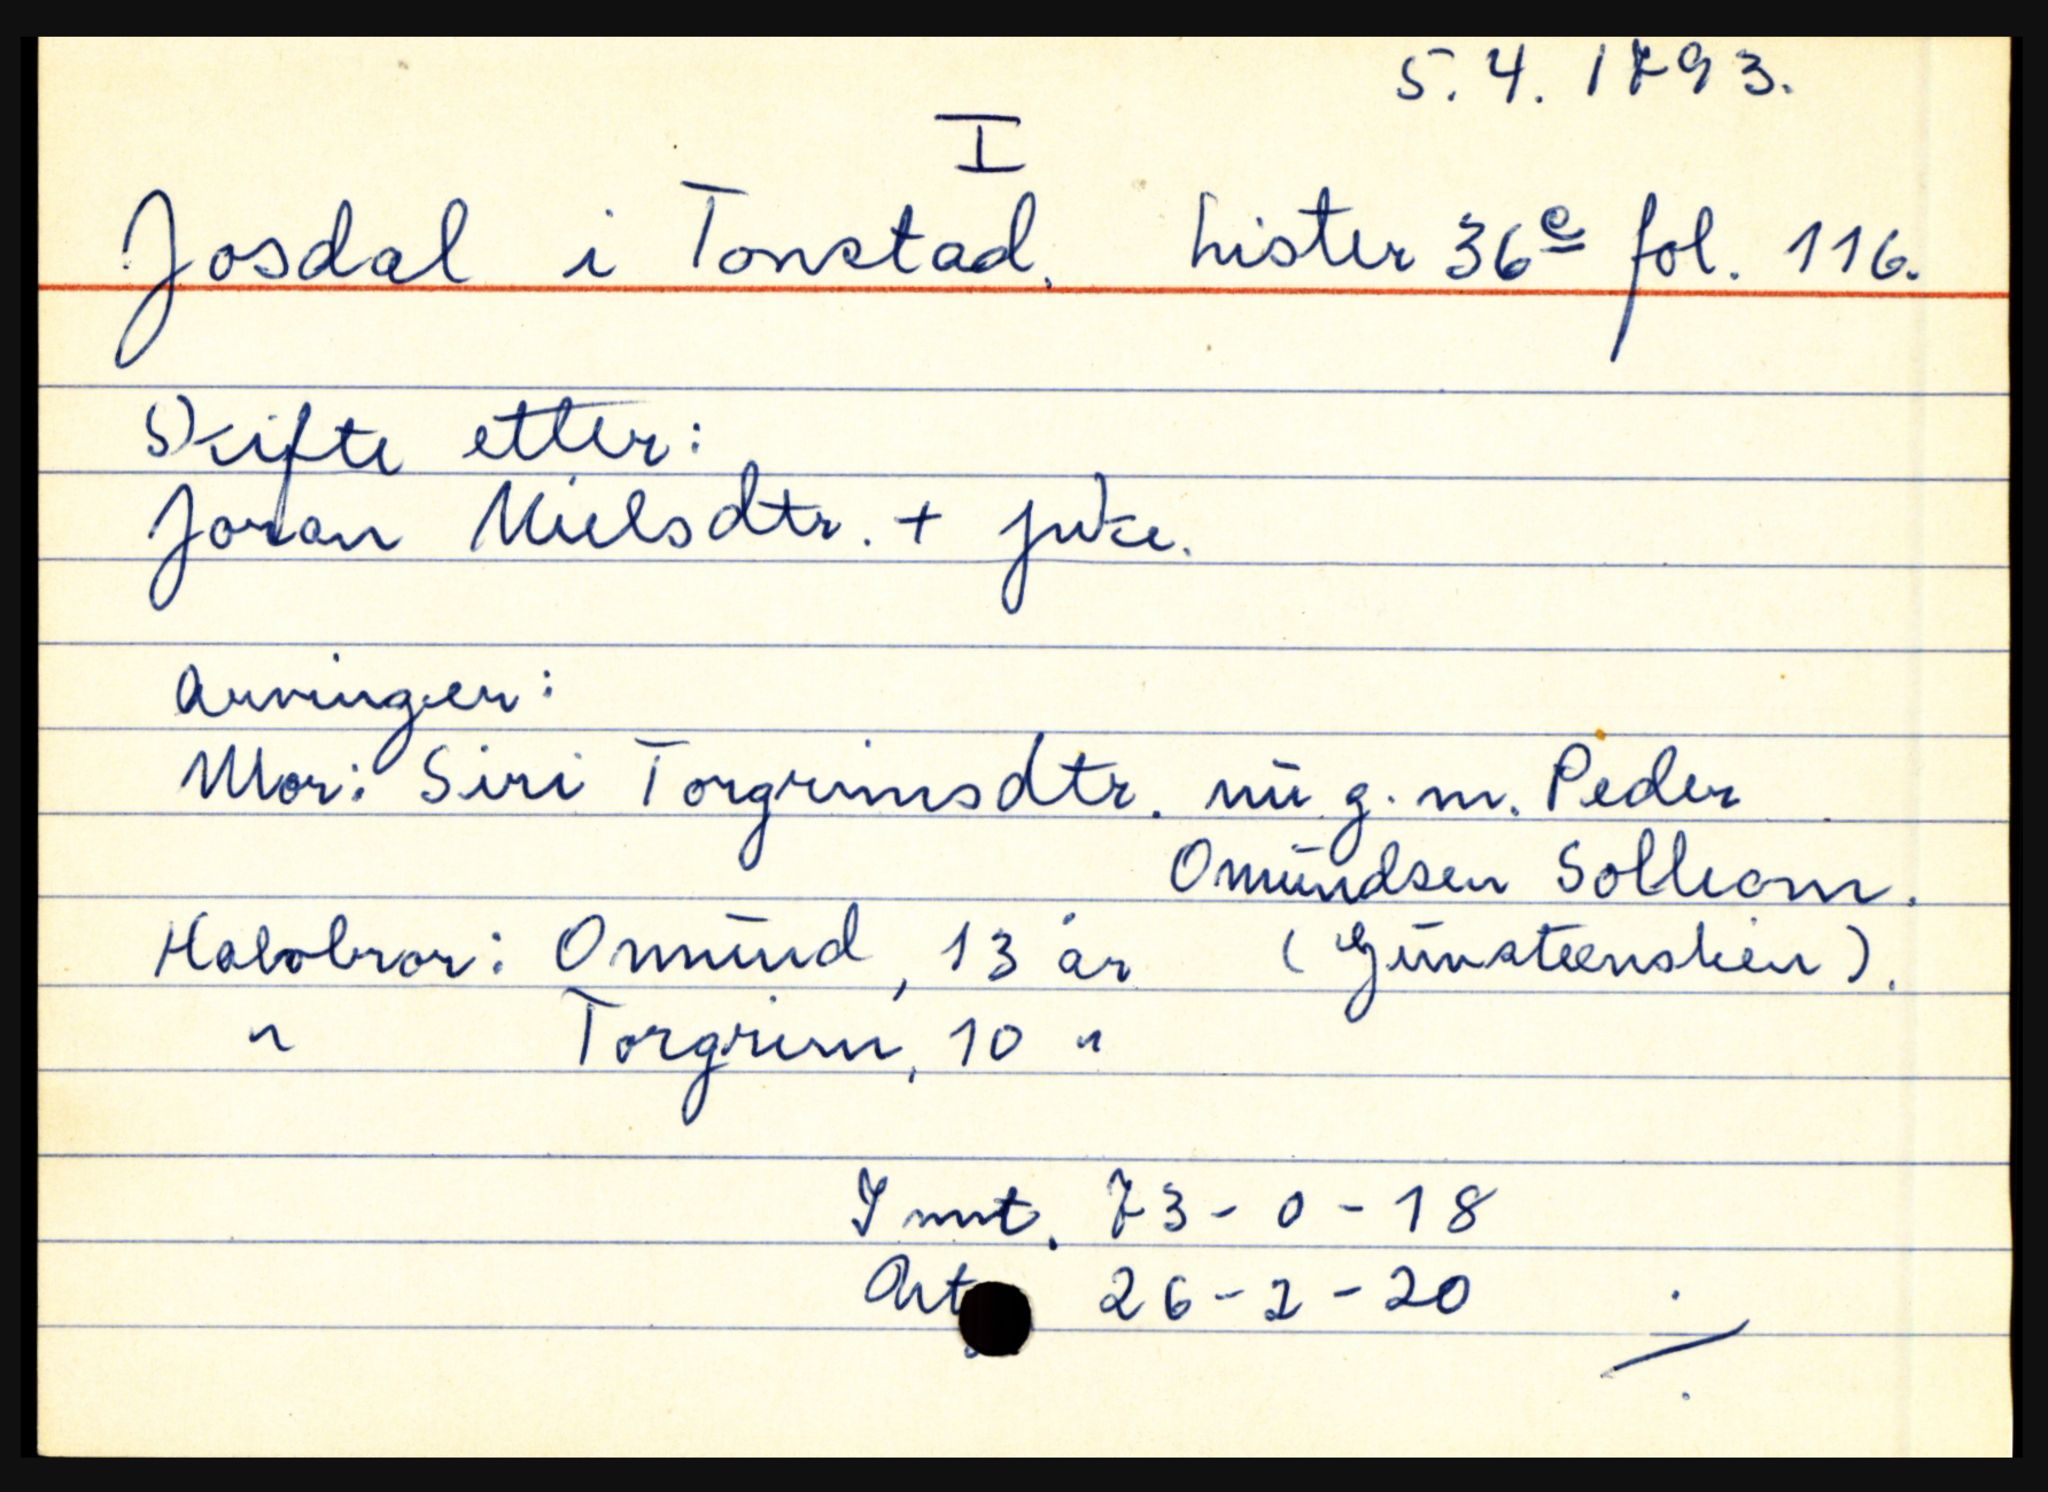 5.4.1793.
I
Josdal i Tonstad. Lister 36e fol. 116.
Skifte etter:
Joran Nielsdtr. + pike.
Arvinger:
Mor: Siri Torgrimsdtr. nu g.m. Peder
Omundsen Solheom.
Halvbror: Omund, 13 år (Gunsteenslien).
" Torgrim, 10 "
Innt. 73-0-18
26-2-20